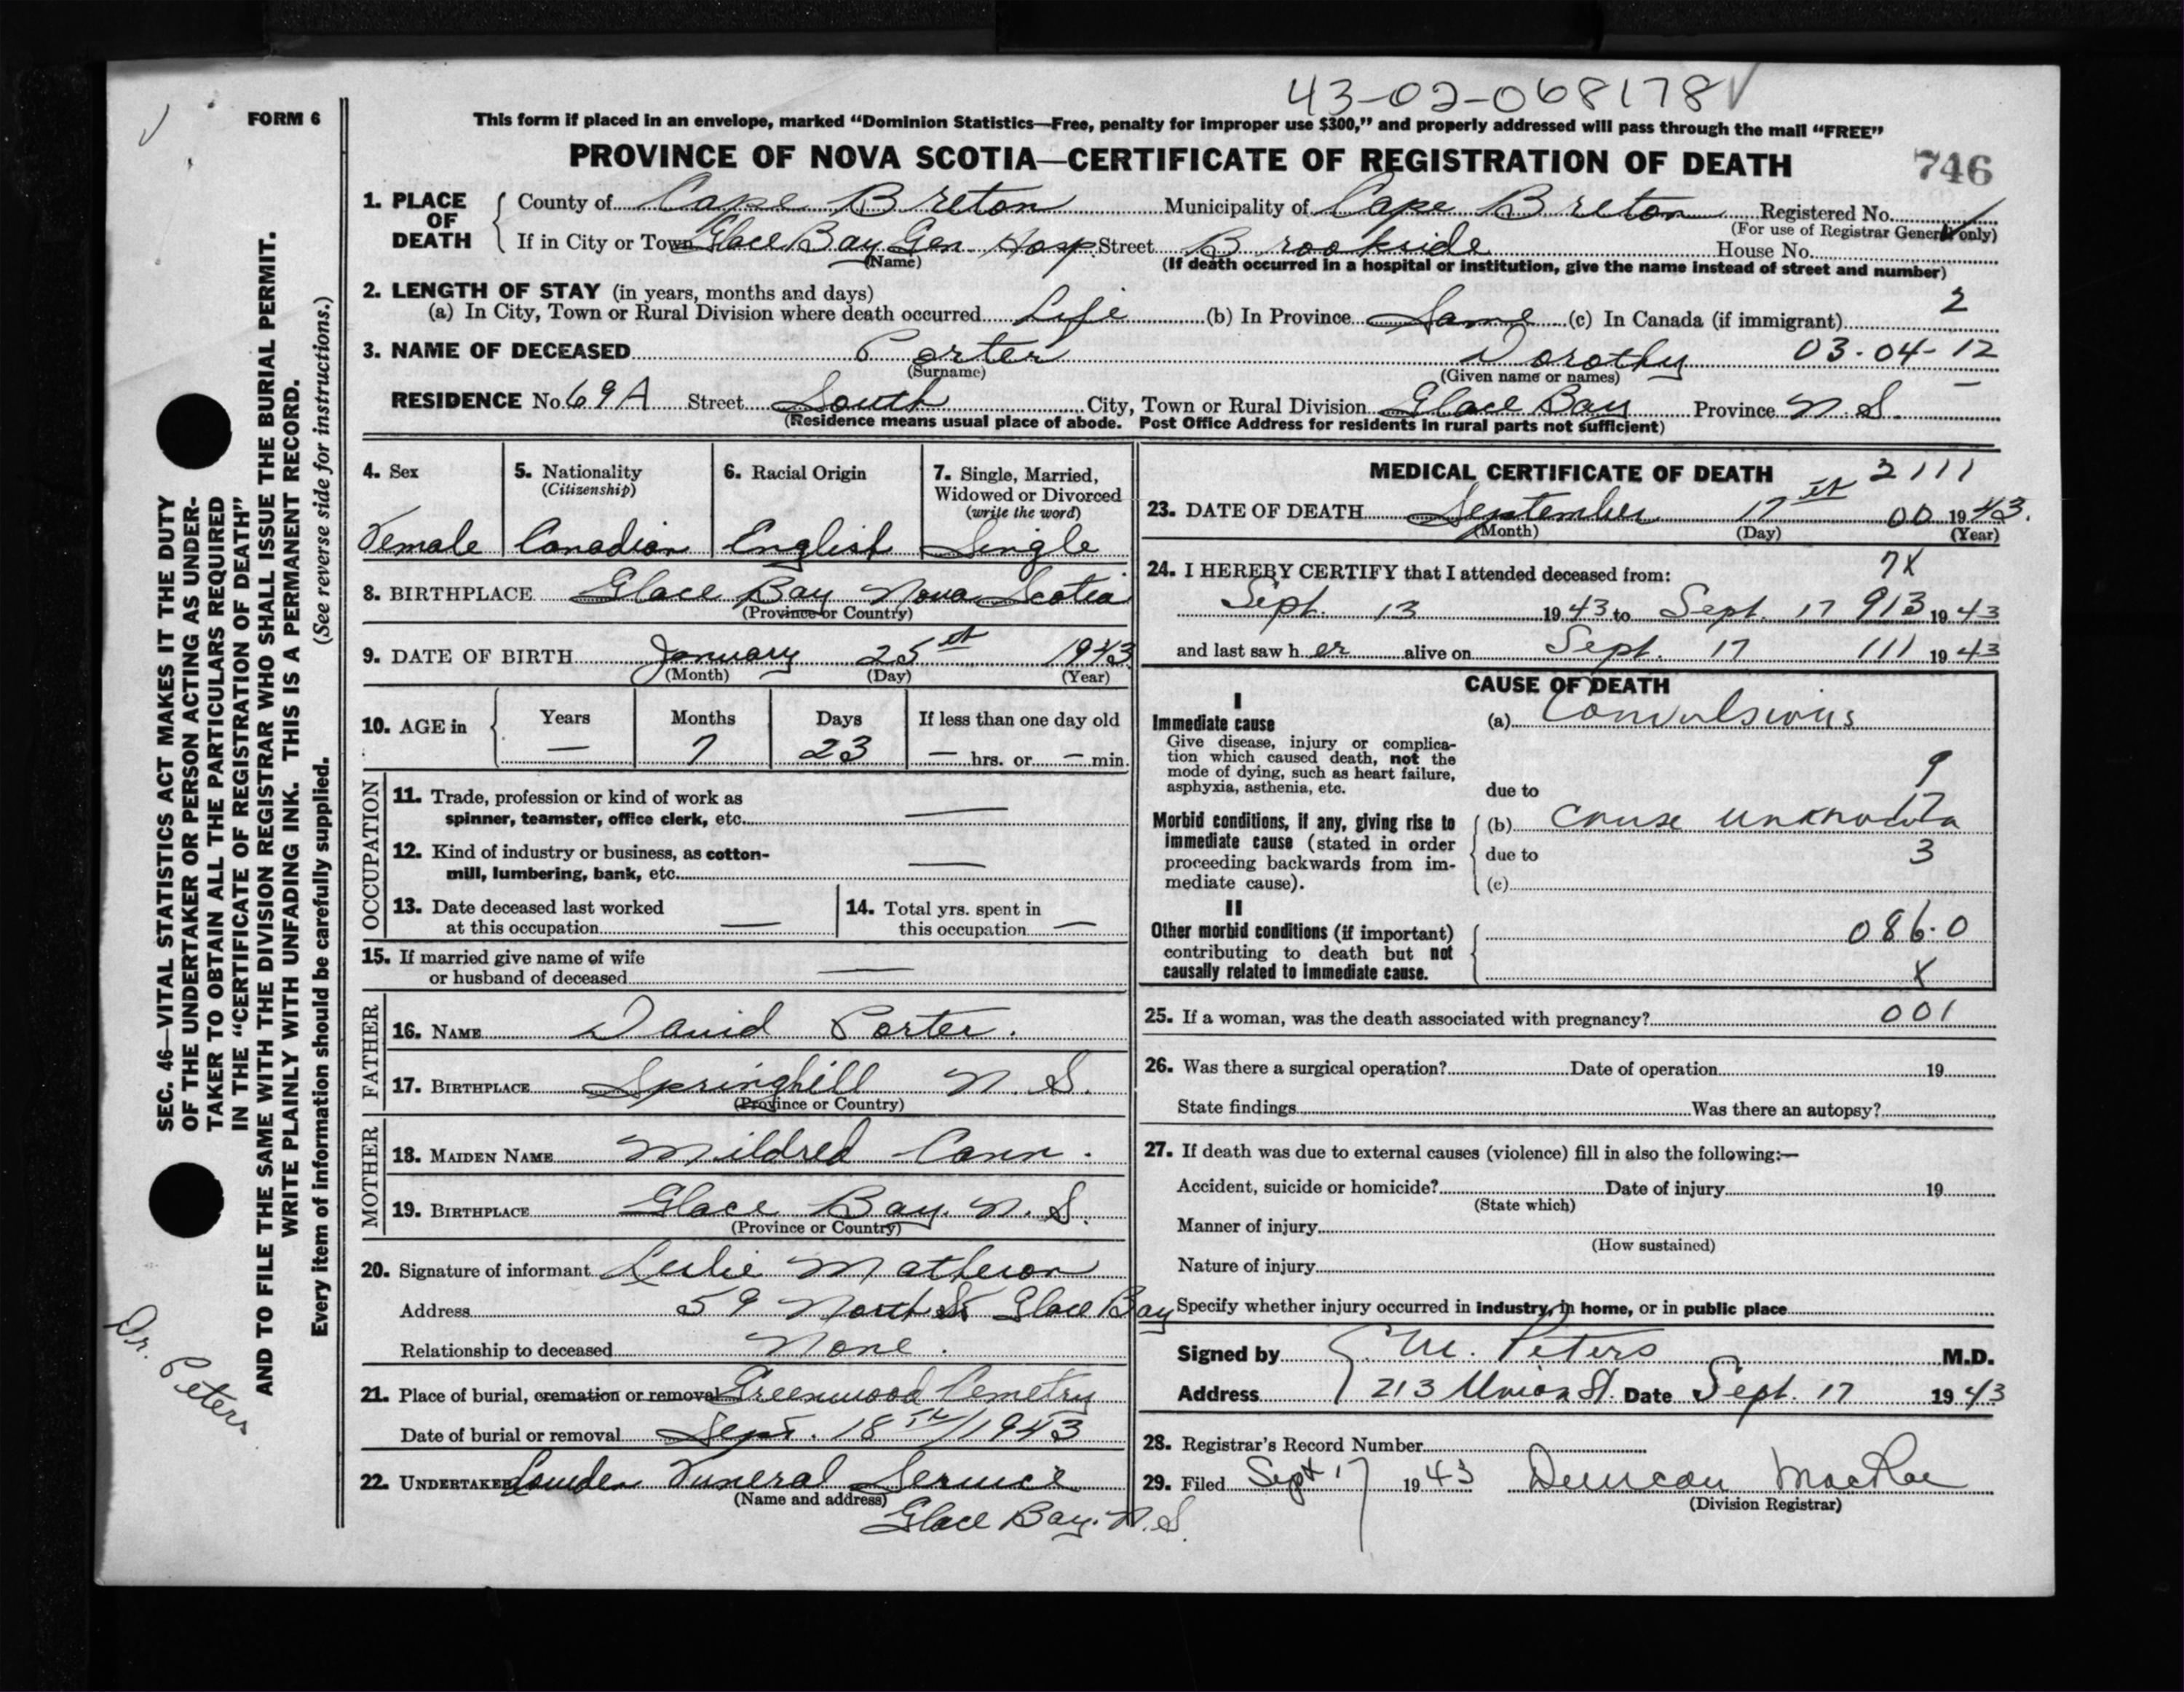 43-02-068178
FORM 6
This form if placed in an envelope, marked "Dominion Statistics—Free, penalty for improper use $300," and properly addressed will pass through the mail "FREE"
PROVINCE OF NOVA SCOTIA—CERTIFICATE OF REGISTRATION OF DEATH 746
1. PLACE OF DEATH County of Cape Breton Municipality of Cape Breton Registered No.
(For use of Registrar General only)
If in City or Town Glace Bay Gen Hosp. Street Brookside House No.
(Name) (If death occurred in a hospital or institution, give the name instead of street and number)
2. LENGTH OF STAY (in years, months and days) 2
(a) In City, Town or Rural Division where death occurred Life (b) In Province Same (c) In Canada (if immigrant)
3. NAME OF DECEASED Porter Dorothy 03-04-12
(Surname) (Given name or names)
RESIDENCE No. 69A Street South City, Town or Rural Division Glace Bay Province N.S.
(Residence means usual place of abode. Post Office Address for residents in rural parts not sufficient)
4. Sex 5. Nationality (Citizenship) 6. Racial Origin 7. Single, Married, Widowed or Divorced (write the word)
Female Canadian English Single
8. BIRTHPLACE Glace Bay Nova Scotia
(Province or Country)
9. DATE OF BIRTH January 25th 1943
(Month) (Day) (Year)
10. AGE in Years Months Days If less than one day old
— 7 23 — hrs. or — min.
OCCUPATION
11. Trade, profession or kind of work as
spinner, teamster, office clerk, etc. —
12. Kind of industry or business, as cotton-
mill, lumbering, bank, etc. —
13. Date deceased last worked
at this occupation —
14. Total yrs. spent in
this occupation —
15. If married give name of wife
or husband of deceased —
FATHER
16. NAME David Porter.
17. BIRTHPLACE Springhill N.S.
(Province or Country)
MOTHER
18. MAIDEN NAME Mildred Cann.
19. BIRTHPLACE Glace Bay. N.S.
(Province or Country)
20. Signature of informant Leslie Matheson
Address 59 North St Glace Bay
Relationship to deceased None.
21. Place of burial, cremation or removal Greenwood Cemetry
Date of burial or removal Sept. 18th/1943
22. UNDERTAKER Funeral Service
(Name and address)
Glace Bay. N.S.
MEDICAL CERTIFICATE OF DEATH 2111
23. DATE OF DEATH September 17th 00 1943.
(Month) (Day) (Year)
24. I HEREBY CERTIFY that I attended deceased from: 7X
Sept. 13 1943 to Sept. 17 913 1943
and last saw her alive on Sept. 17 111 1943
CAUSE OF DEATH
I
Immediate cause (a) Convulsions
Give disease, injury or complica-
tion which caused death, not the
mode of dying, such as heart failure,
asphyxia, asthenia, etc. due to 9
Morbid conditions, if any, giving rise to
immediate cause (stated in order
proceeding backwards from im-
mediate cause).
(b) Cause unknown 17
due to 3
(c)
II
Other morbid conditions (if important)
contributing to death but not
causally related to immediate cause.
086.0
X
25. If a woman, was the death associated with pregnancy? 001
26. Was there a surgical operation? Date of operation 19
State findings Was there an autopsy?
27. If death was due to external causes (violence) fill in also the following:—
Accident, suicide or homicide? Date of injury 19
(State which)
Manner of injury
(How sustained)
Nature of injury
Specify whether injury occurred in industry, in home, or in public place
Signed by M. Peters M.D.
Address 213 Union St. Date Sept. 17 1943
28. Registrar's Record Number
29. Filed Sept 17 1943 Duncan MacRae
(Division Registrar)
SEC. 46—VITAL STATISTICS ACT MAKES IT THE DUTY
OF THE UNDERTAKER OR PERSON ACTING AS UNDER-
TAKER TO OBTAIN ALL THE PARTICULARS REQUIRED
IN THE "CERTIFICATE OF REGISTRATION OF DEATH"
AND TO FILE THE SAME WITH THE DIVISION REGISTRAR WHO SHALL ISSUE THE BURIAL PERMIT.
WRITE PLAINLY WITH UNFADING INK. THIS IS A PERMANENT RECORD.
Every item of information should be carefully supplied. (See reverse side for instructions.)
Dr. Peters